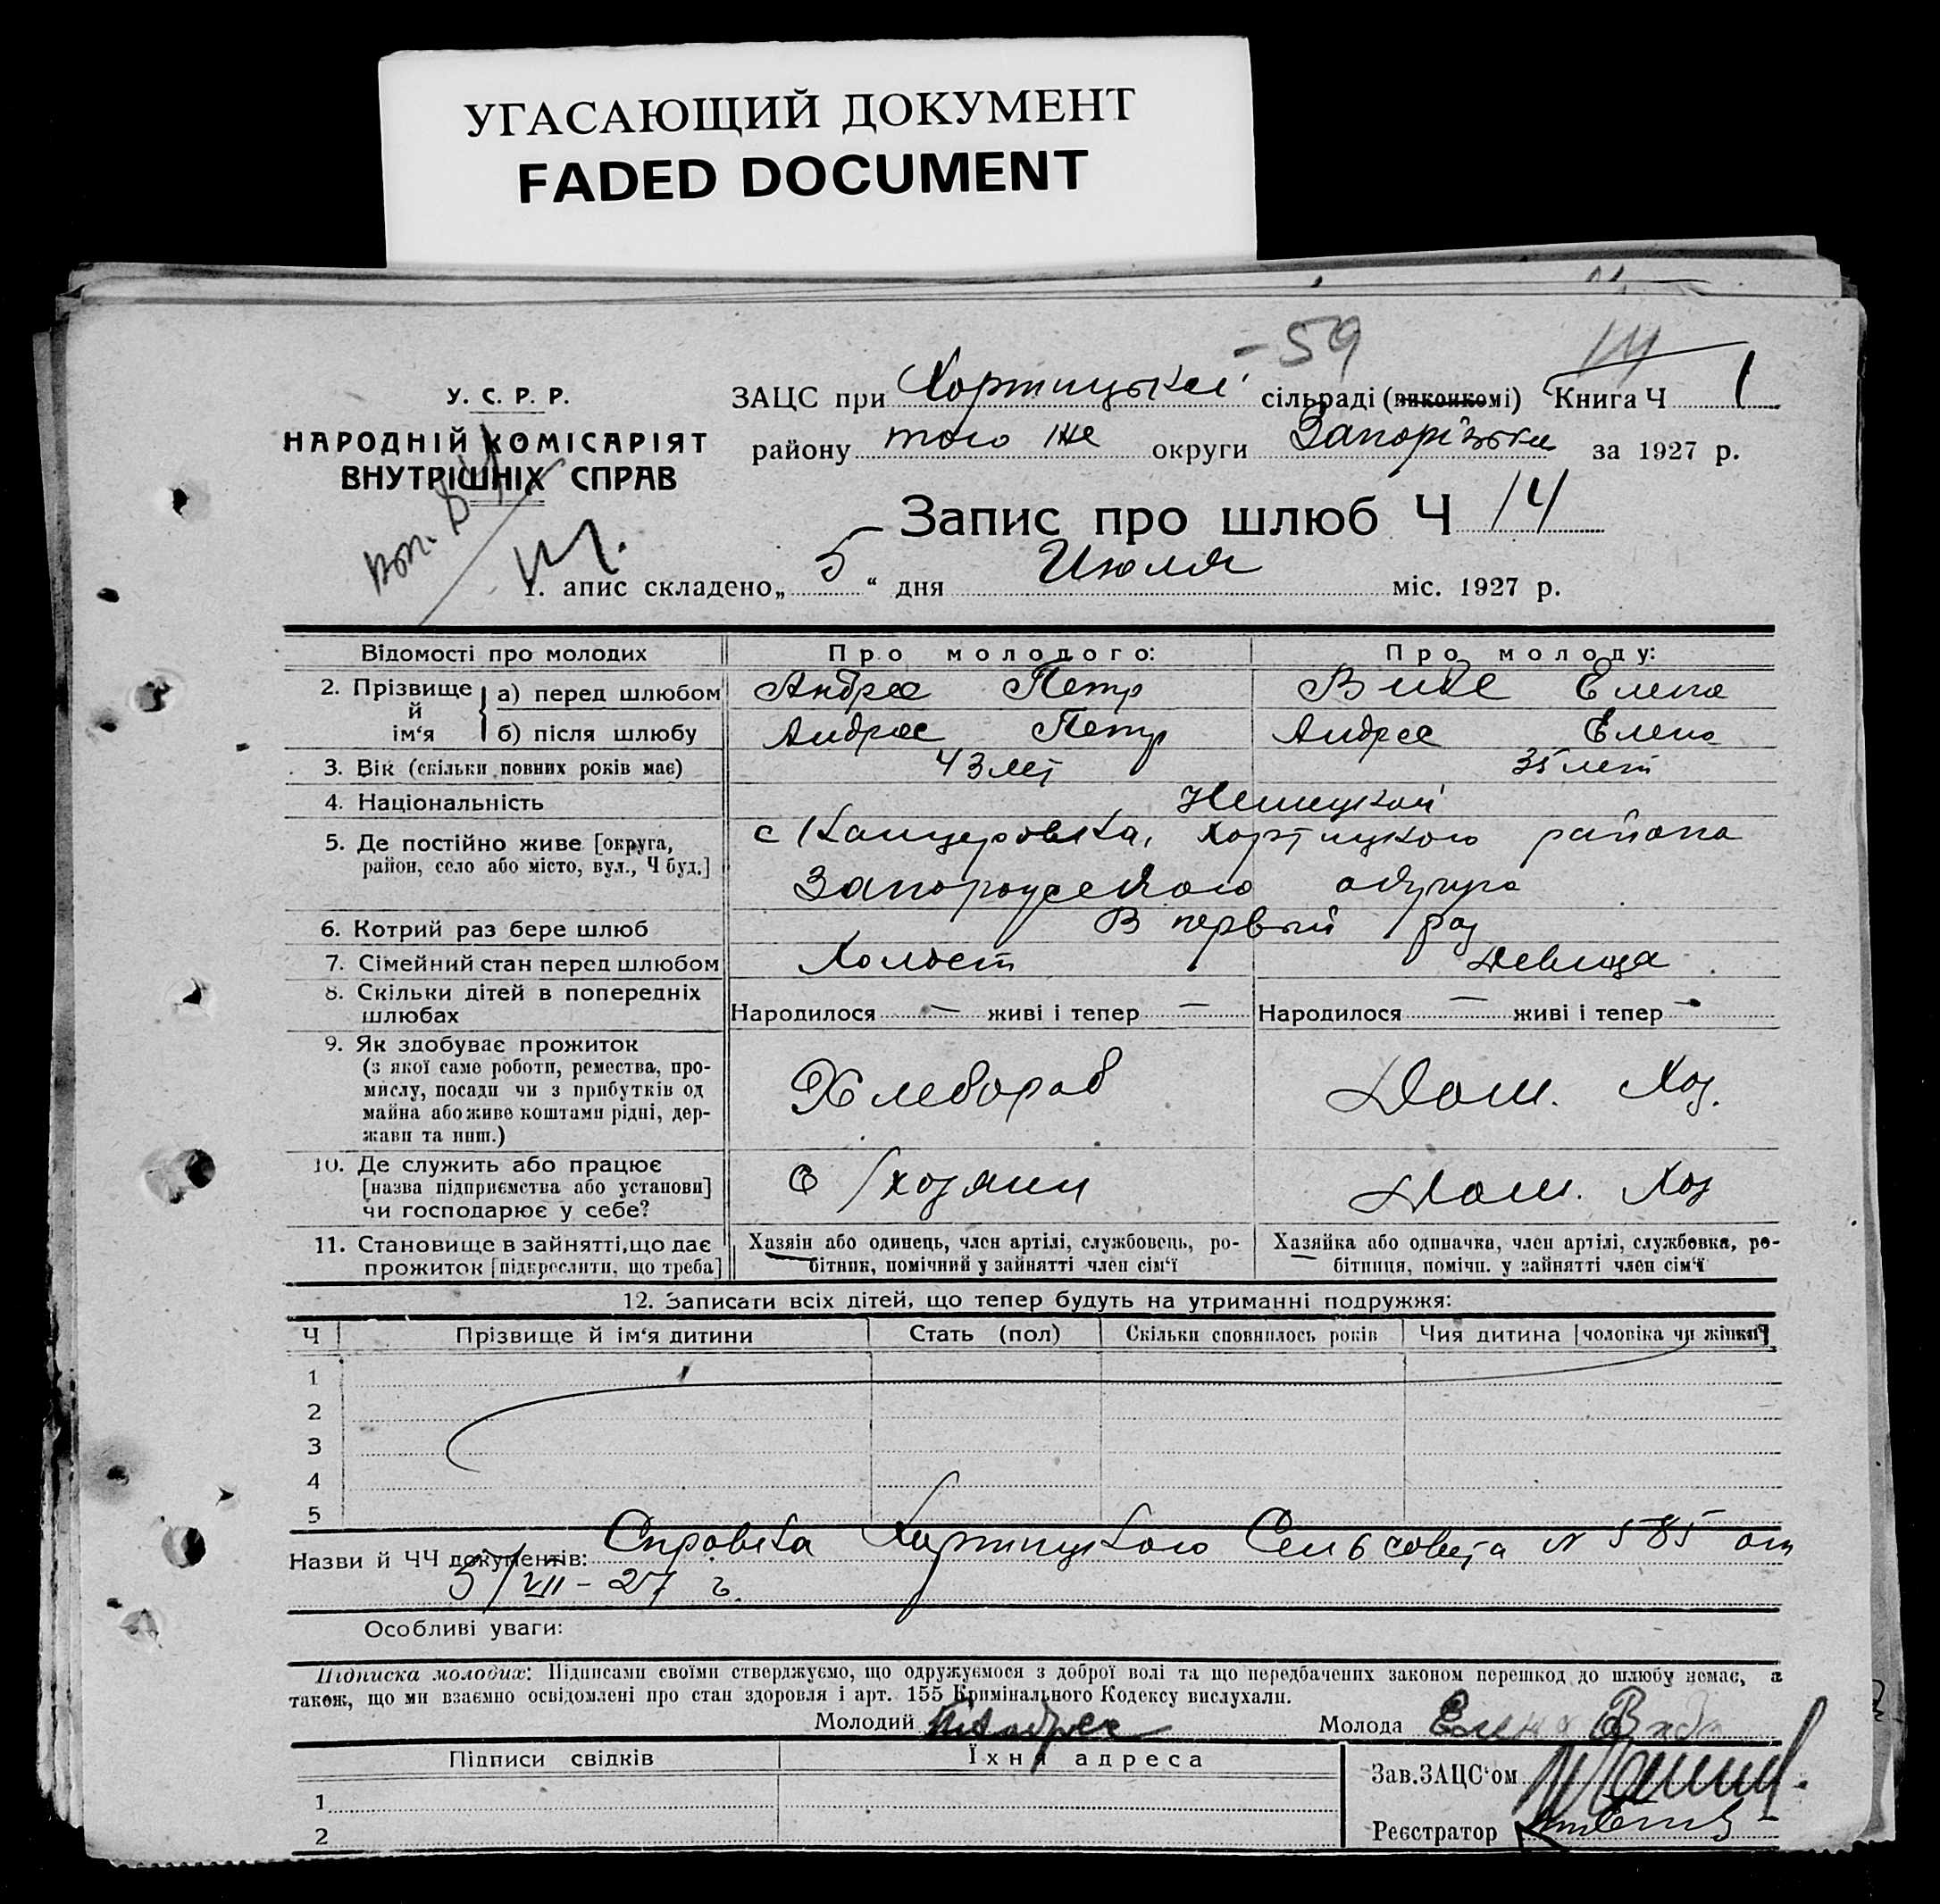 УГАСАЮЩИЙ ДОКУМЕНТ
FADED DOCUMENT
- 59
14
У. С. Р. Р.
НАРОДНІЙ КОМІСАРІЯТ
ВНУТРІШНІХ СПРАВ
ЗАЦС при Хортицькій сільраді (виконкомі) Книга Ч 1
району того же округи Запорізька за 1927 р.
Запис про шлюб Ч 14
1. апис складено „ 5 “ дня Июля міс. 1927 р.
Відомості про молодих Про молодого: Про молоду:
2. Прізвище й ім‘я а) перед шлюбом Андрес Петр Вибе Елена
б) після шлюбу Андрес Петр Андрес Елена
3. Вік (скільки повних років має) 43 лет 35 лет
4. Національність Немецкой
5. Де постійно живе [округа, с Канцеровка, Хортицкого района
район, село або місто, вул., Ч буд.]
Запорожского округа
6. Котрий раз бере шлюб В первый раз
7. Сімейний стан перед шлюбом Холост Девица
8. Скільки дітей в попередніх
шлюбах Народилося — живі і тепер — Народилося — живі і тепер —
9. Як здобуває прожиток
(з якої саме роботи, ремества, про-
мислу, посади чи з прибутків од
майна або живе коштами рідні, дер-
жави та инш.)
Хлебороб Дом. Хоз.
10. Де служить або працює
[назва підприємства або установи]
чи господарює у себе?
С/хозяин Дом. Хоз
11. Становище в зайнятті, що дає
прожиток [підкреслити, що треба]
Хазяін або одинець, член артілі, службовець, ро-
бітник, помічний у зайнятті член сім‘ї
Хазяйка або одиначка, член артілі, службовка, ро-
бітниця, помічн. у зайнятті член сім‘ї
12. Записати всіх дітей, що тепер будуть на утриманні подружжя:
Ч Прізвище й ім‘я дитини Стать (пол) Скільки сповнилось років Чия дитина [чоловіка чи жінки]
1
2
3
4
5
Назви й ЧЧ документів: Справка Хортицкого Сельсовета N 585 от
5/VII - 27 г.
Особливі уваги:
Підписка молодих: Підписами своїми стверджуємо, що одружуємося з доброї волі та що передбачених законом перешкод до шлюбу немає, а
також, що ми взаємно освідомлені про стан здоровля і арт. 155 Кримінального Кодексу вислухали.
Молодий Андрес Молода Елена Вибе
Підписи свідків Їхня адреса
Зав. ЗАЦС‘ом
1
2
Реєстратор